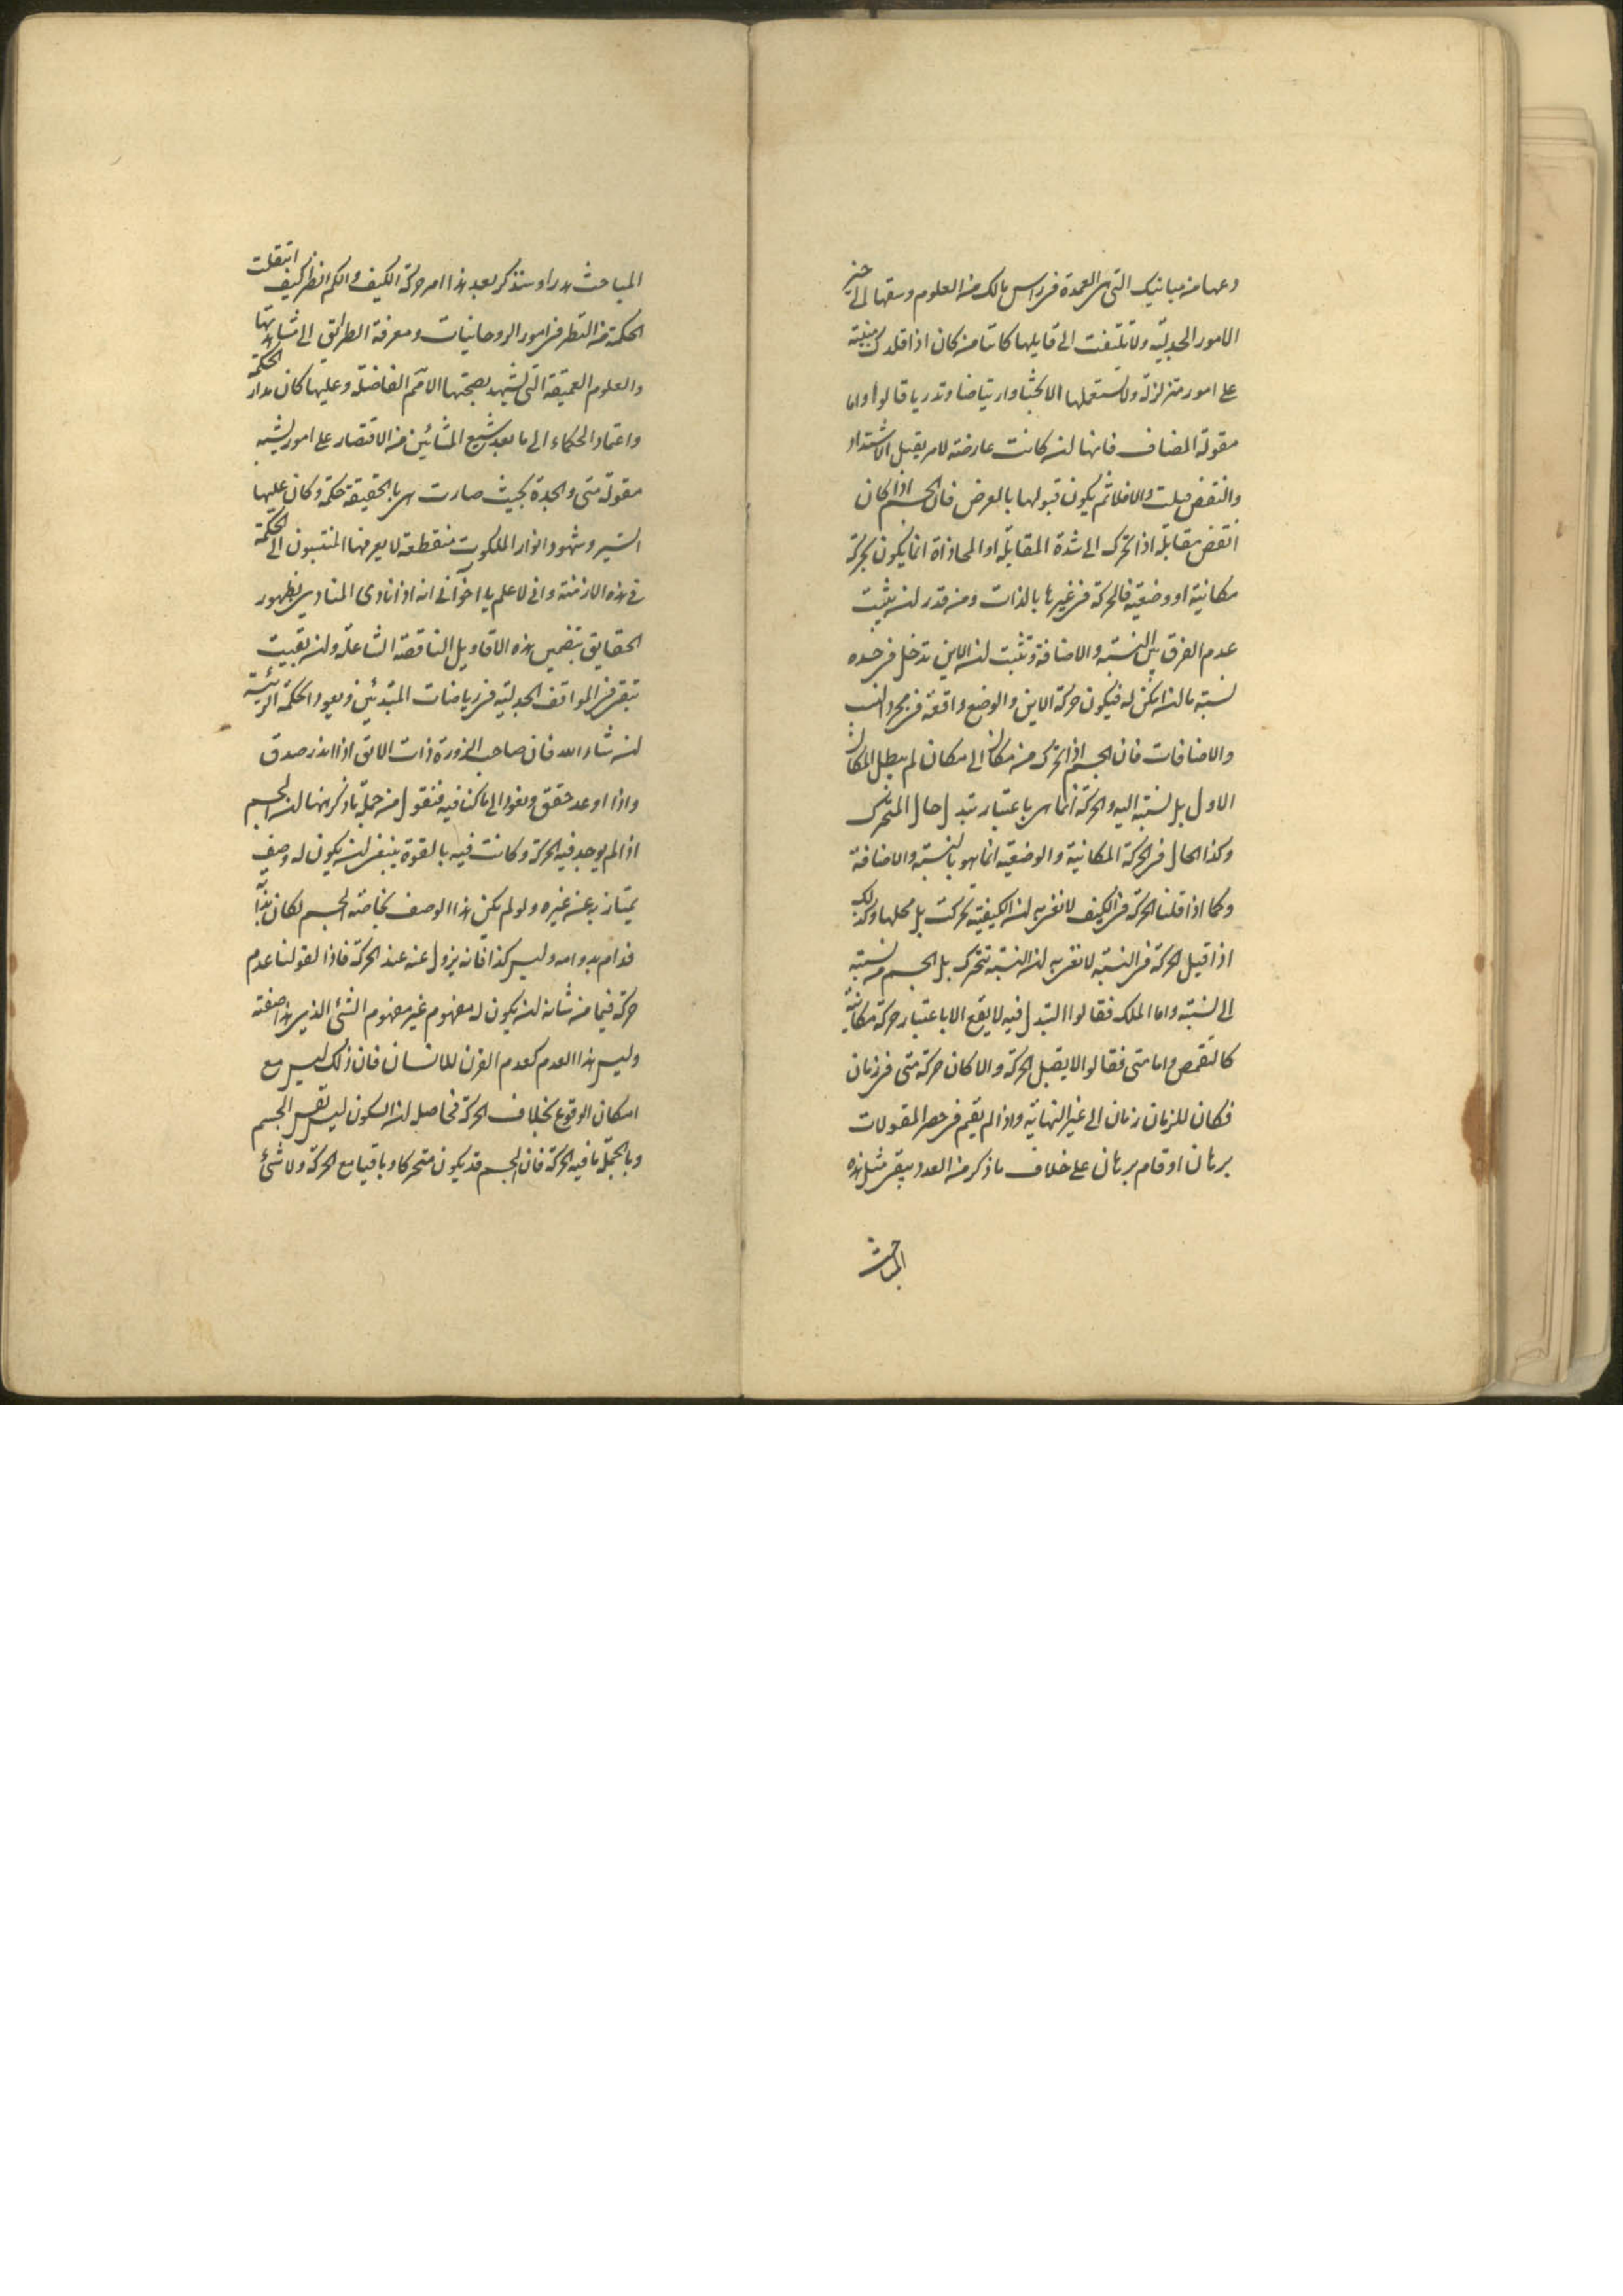 دعها من مبانيك التى هى العمدة فى راس مالك من العلوم وسقها الى حيز
الامور الجدلية ولا تلتفت الى قايلها كائنا من كان اذا قلدك مبنية
على امور متزلزلة ولا تستعملها الا بحثا وارتياضا وتدربا قالوا واما
مقولة المضاف فانها ان كانت عارضة لامر يقبل الاشتداد
والنقص قبلت والا فلا ثم يكون قبولها بالعرض فان الجسم اذا كان
انقص مقابلة اذا تحرك الى شدة المقابلة او المحاذاة انما يكون بحركة
مكانية او وضعية فالحركة فى غيرها بالذات ومن قدر ان يثبت
عدم الفرق بين النسبة والاضافة وتثبت ان الاين تدخل فى حده
نسبة ما ان امكن له فيكون حركة الاين والوضع واقعة فى مجرد النسب
والاضافات فان الجسم اذا تحرك من مكان الى مكان لم يبطل المكان
الاول بل نسبته اليه والحركة انما هى باعتبار تبدل حال المتحرك
وكذا الحال فى الحركة المكانية والوضعية انما هو بالنسبة والاضافة
وكما اذا قلنا الحركة فى الكيف لا نعنى به ان الكيفية تحركت بل محلها وكذلك
اذا قيل الحركة فى النسبة لا نعنى به ان النسبة تتحرك بل الجسم من نسبة
الى نسبة واما الملك فقالوا التبدل فيه لا يقع الا باعتبار حركة مكانية
كالتقمص واما متى فقالوا لا يقبل الحركة والا كان حركة متى فى زمان
فكان للزمان زمان الى غير النهاية واذا لم يقم فى حصر المقولات
برهان او قام برهان على خلاف ما ذكر من العدد يبقى مثل هذه
المباحث
المباحث هدرا وسنذكر بعد هذا امر حركة الكيف والكم انظر كيف انتقلت
الحكمة من النظر فى امور الروحانيات ومعرفة الطرائق الى مشاهدتها
والعلوم العميقة التى تشهد بصحتها الامم الفاضلة وعليها كان مدار الحكمة
واعتماد الحكماء الى ما بعد شيع المشائين من الاقتصار على امور يشبه
مقولة متى والجدة بحيث صارت هى بالحقيقة حكمة وكان عليها
السير وشهود انوار الملكوت منقطعة لا يعرفها المنتسبون الى الحكمة
فى هذه الازمنة وانى لاعلم يا اخوانى انه اذا نادى المنادى بظهور
الحقايق تضمحل هذه الاقاويل الناقصة الشاغلة وان بقيت
تبقى فى المواقف الجدلية فى رياضات المبتدئين ويعود الحكمة الرئيسة
ان شاء الله فان صاحب الزورة ذات الالق اذا انذر صدق
واذا اوعد حقق ونعود الى ما كنا فيه فنقول من جملة ما ذكر هنا ان الجسم
اذا لم يوجد فيه الحركة وكانت فيه بالقوة ينبغى ان يكون له وصف
يمتاز به عن غيره ولو لم يكن هذا الوصف بخاصة الجسم لكان بذاته
فدام بدوامه وليس كذا فانه يزول عنه عند الحركة فاذا لقولنا عدم
حركة فيما من شانه ان يكون له مفهوم غير مفهوم الشئ الذى هذا صفته
وليس هذا العدم كعدم القرن للانسان فان ذلك ليس مع
امكان الوقوع بخلاف الحركة فحاصل ان السكون ليس نفس الجسم
وبالجملة ما فيه الحركة فان الجسم قد يكون متحركا وباقيا مع الحركة ولا شئ